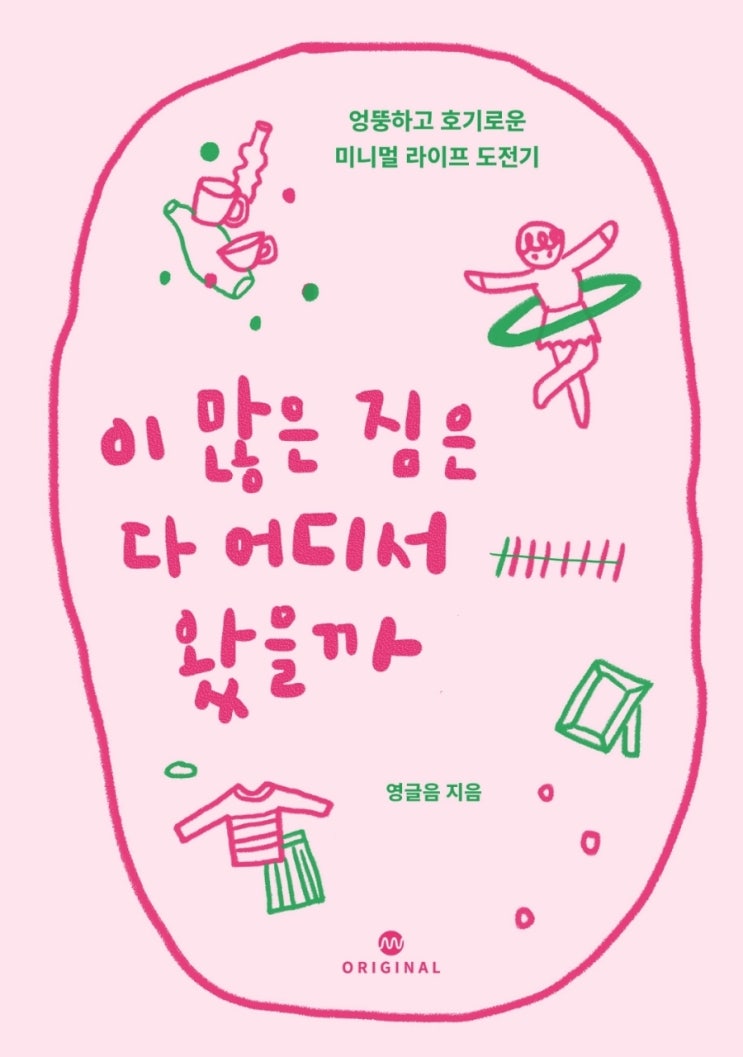 엉뚱하고 호기로운
미니멀 라이프 도전기
이 많은 짐은
다 어디서
왔을까
영글음 지음
ORIGINAL